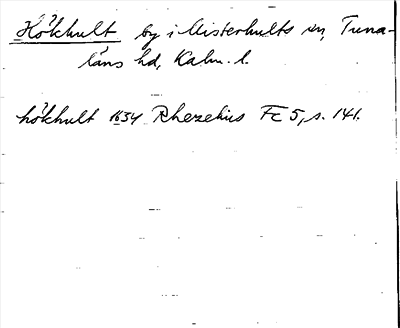 Hökhult by i Misterhults sn, Tuna-
läns hd, Kalm. l.
hökhult 1634 Rhezelius Fc 5, s. 141.